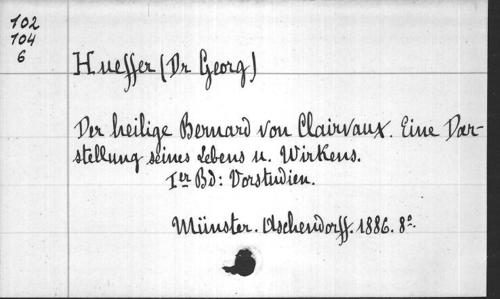 102
104
6
Hueffer (Dr Georg)
Der heilige Bernard von Clairvaux. Eine Dar-
stellung seines Lebens u. Wirkens.
Ier Bd: Vorstudien.
Münster. Aschendorff. 1886. 8º.